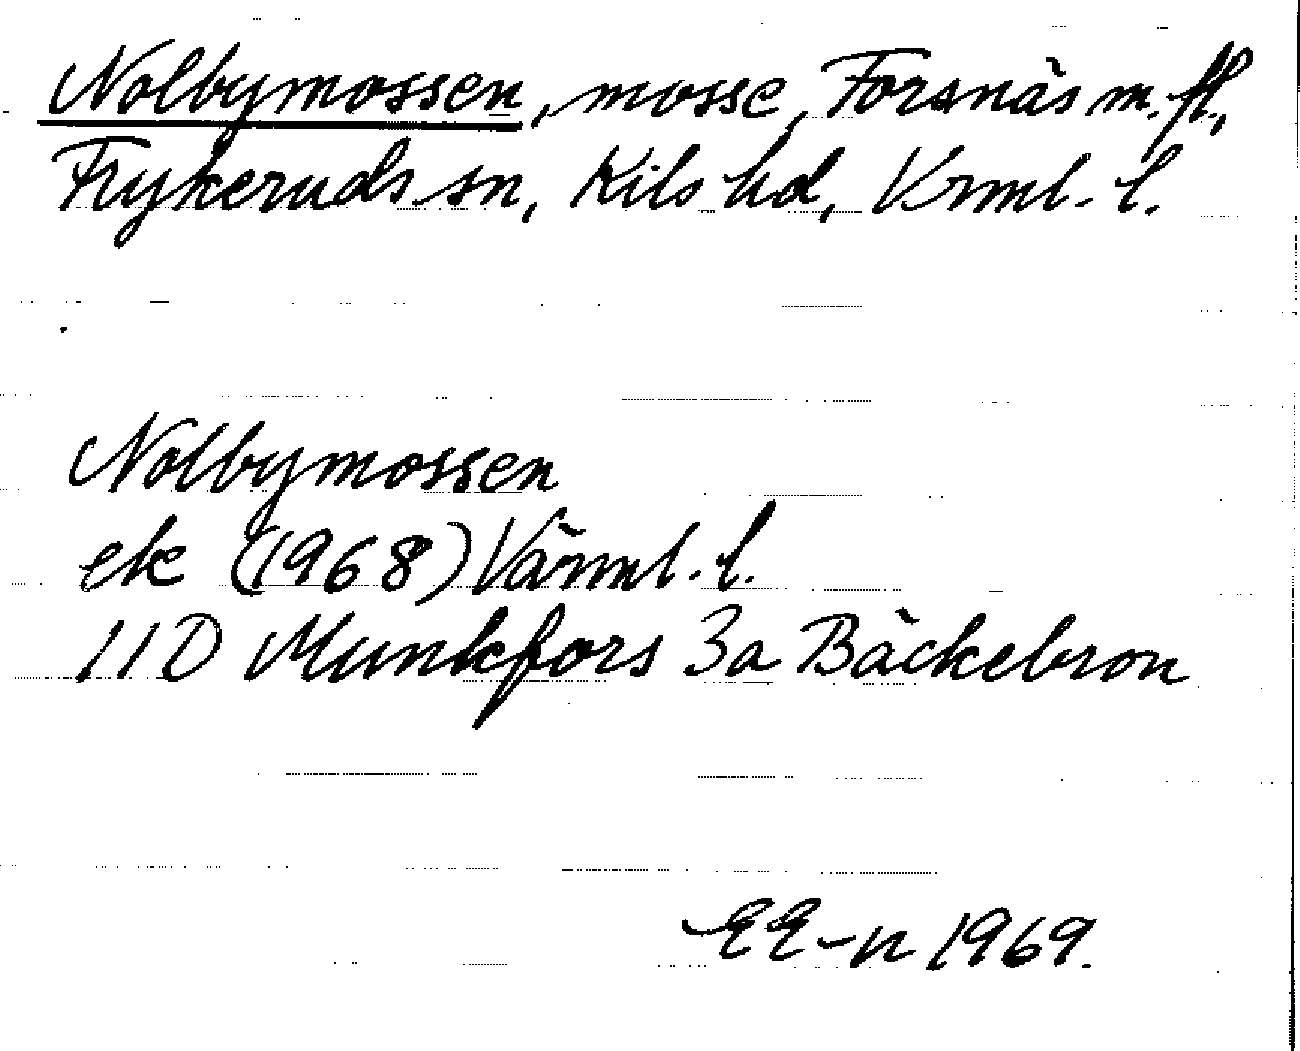 Nolbymossen, mosse, Forsnäs m.fl.,
Frykeruds sn, Kils hd, Vrml. l.
Nolbymossen
ek (1968) Värml. l.
11D Munkfors 3a Bäckebron
EE-n 1969.